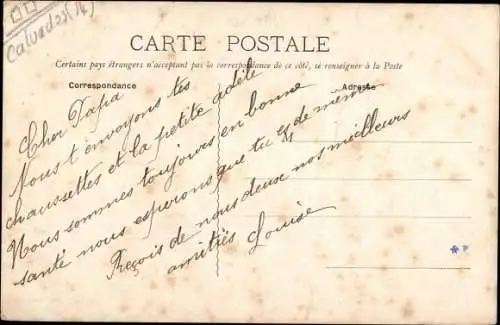 Calvados (14)
CARTE POSTALE
Certains pays étrangers n'acceptant pas la correspondance de ce côté, se renseigner à la Poste
Correspondance
Adresse
Cher Papa
Nous t'envoyons tes
chaussettes et la petite adèle
Nous sommes toujours en bonne
santé nous esperons que tu y de meme
Reçois de nous deux nos meilleurs
amitiés Louise